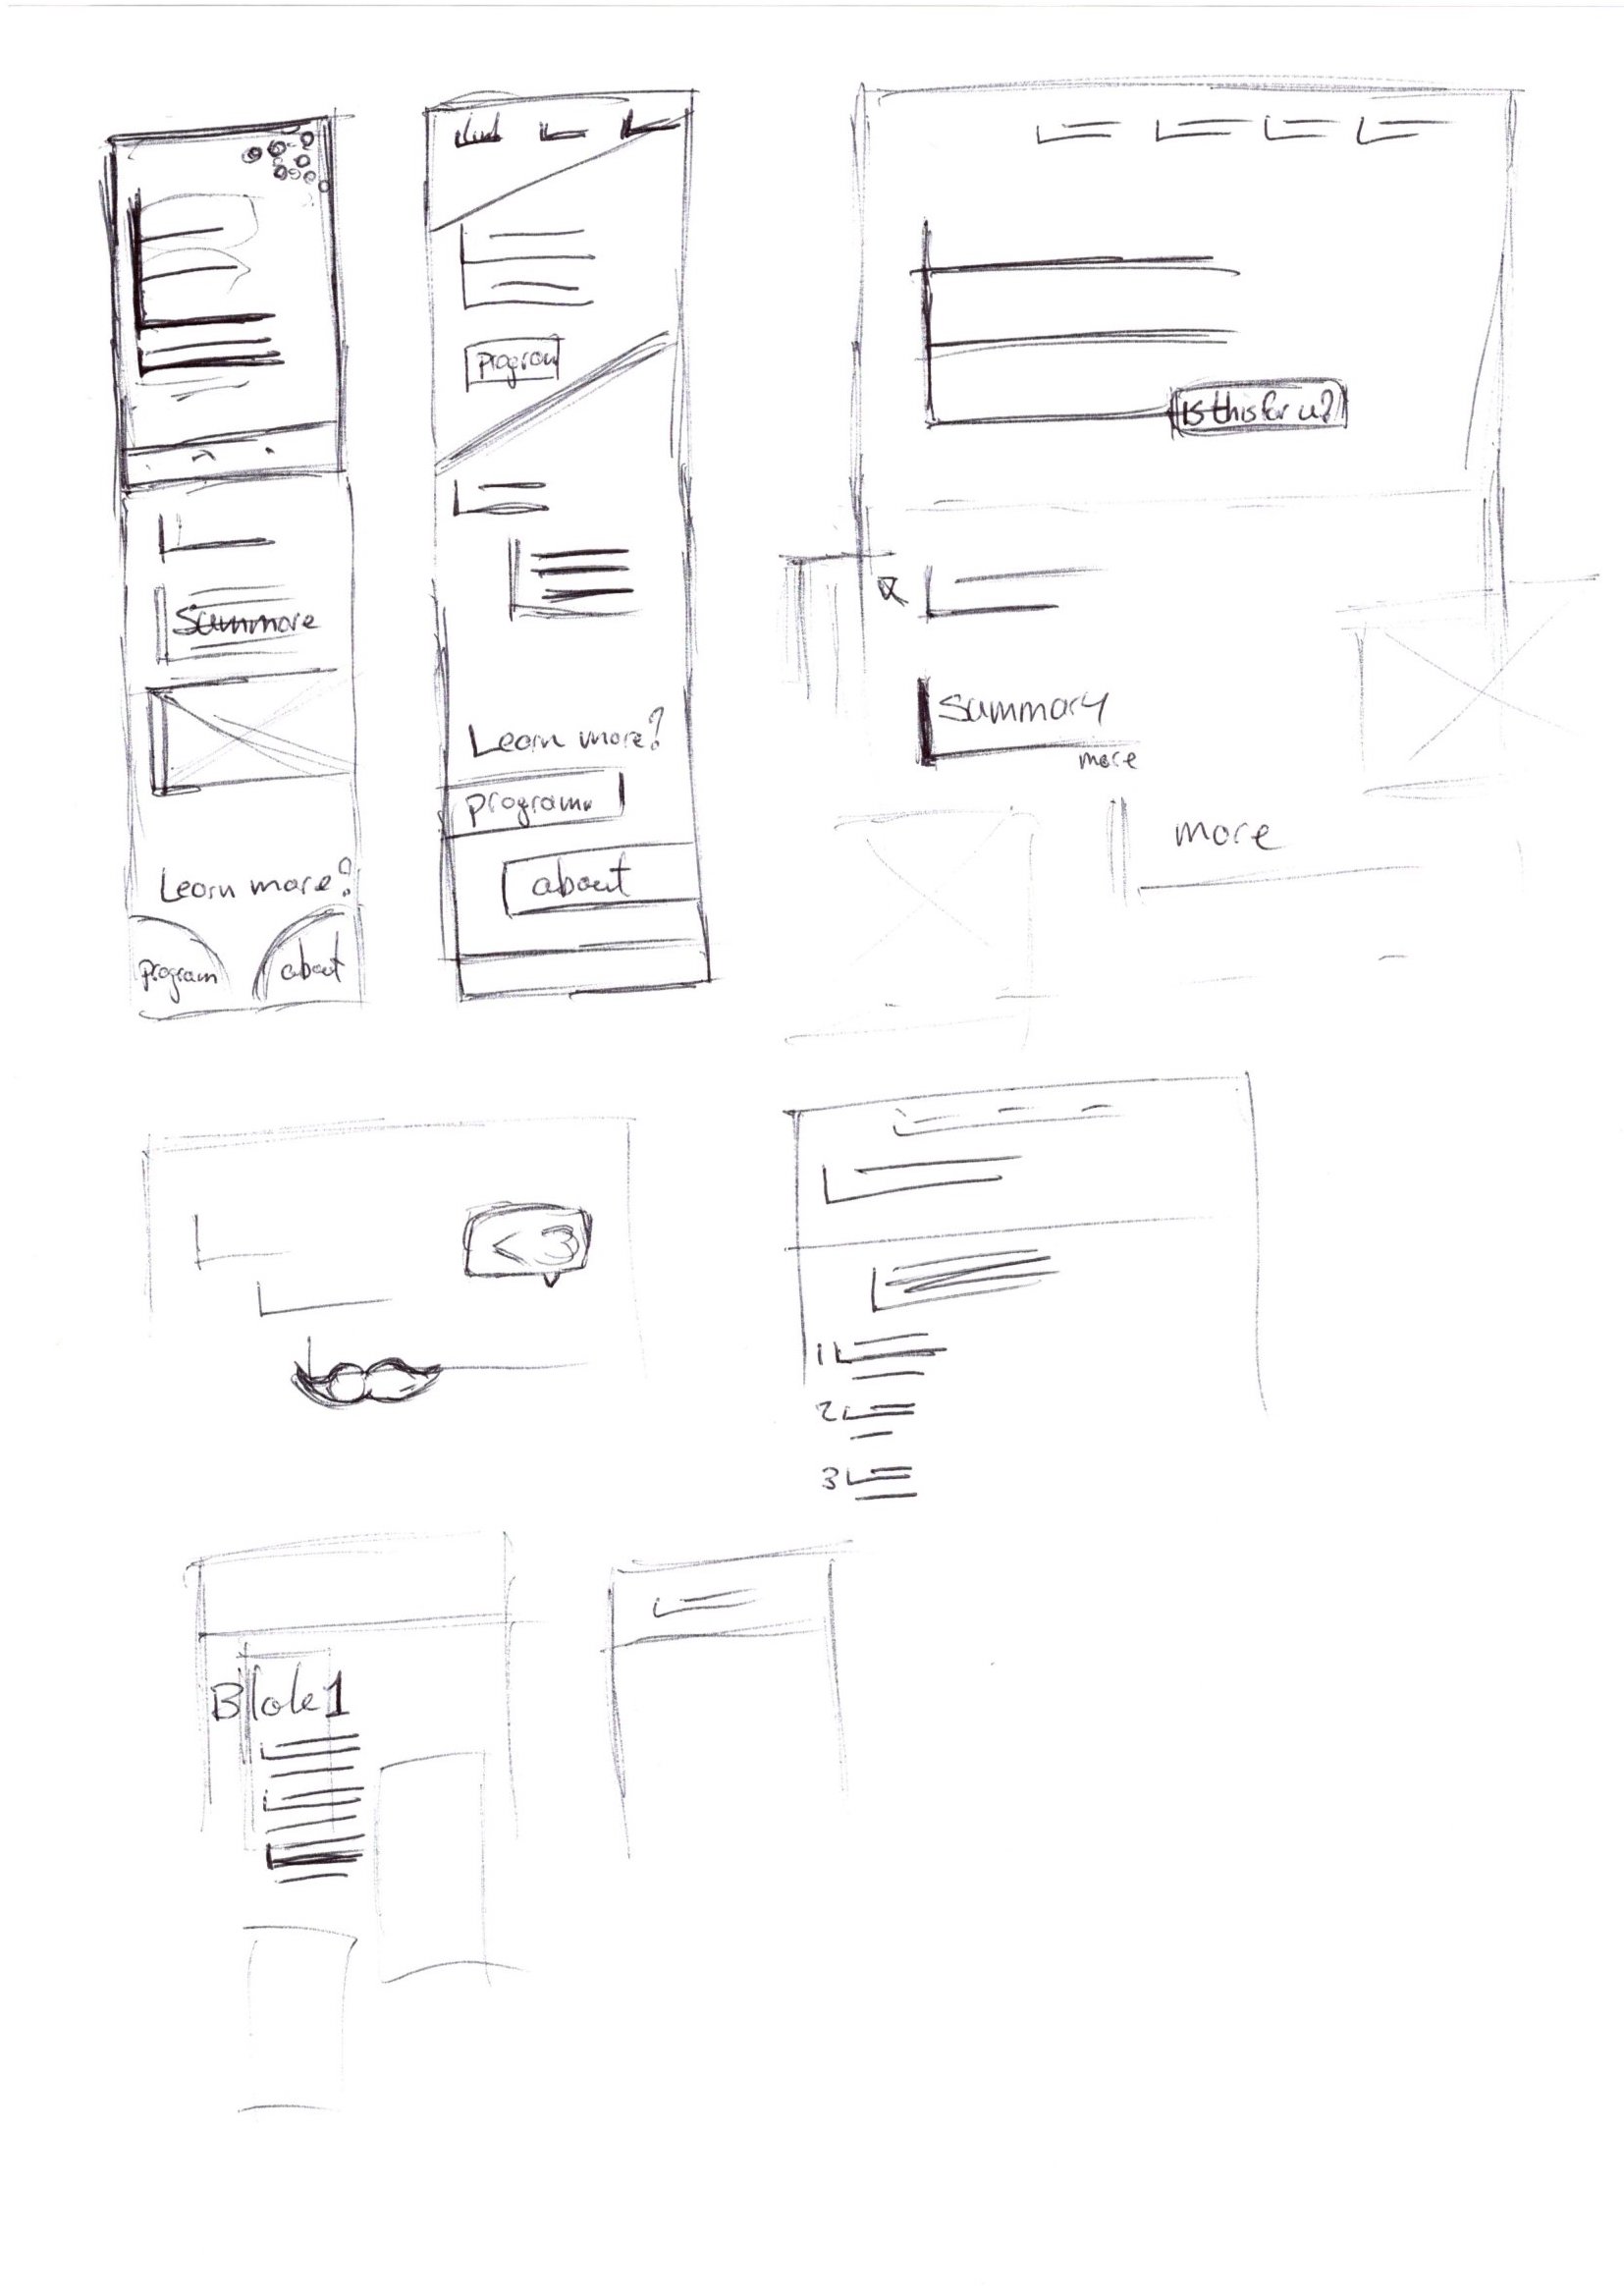 Summore
Learn more?
program
about
program
Learn more?
program
about
is this for u?
Summary
more
more
<3
1
2
3
Blok1